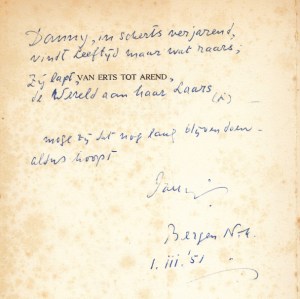 Danny, in scherts verjarend,
vindt leeftijd maar wat raars;
Zij lapt, VAN ERTS TOT AREND,
de Wereld aan haar Laars
moge zij dit nog lang blijven doen -
aldus hoopt
Bergen N-H.
1. III. '51